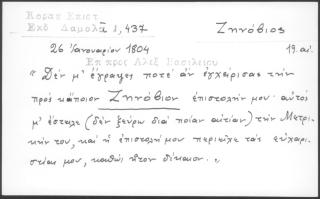 Κοραῆ Ἐπιστ.
Ἐκδ Δαμαλᾶ 1,437
Ζηνόβιος
26 Ἰανουαρίου 1804
19. αἰ.
Ἐπ προς Ἀλεξ Βασιλείου
"Δὲν μ' ἔγραψες ποτὲ ἂν ἐγχείρισας τὴν
πρὸς κάποιον Ζηνόβιον ἐπιστολήν μου· αὐτὸς
μ' ἔστειλε (δὲν ξεύρω διὰ ποίαν αἰτίαν) τὴν Μετρι-
κήν του, καὶ ἡ ἐπιστολή μου περιεῖχε τὰς εὐχαρι-
στίας μου, καθὼς ἦτον δίκαιον."